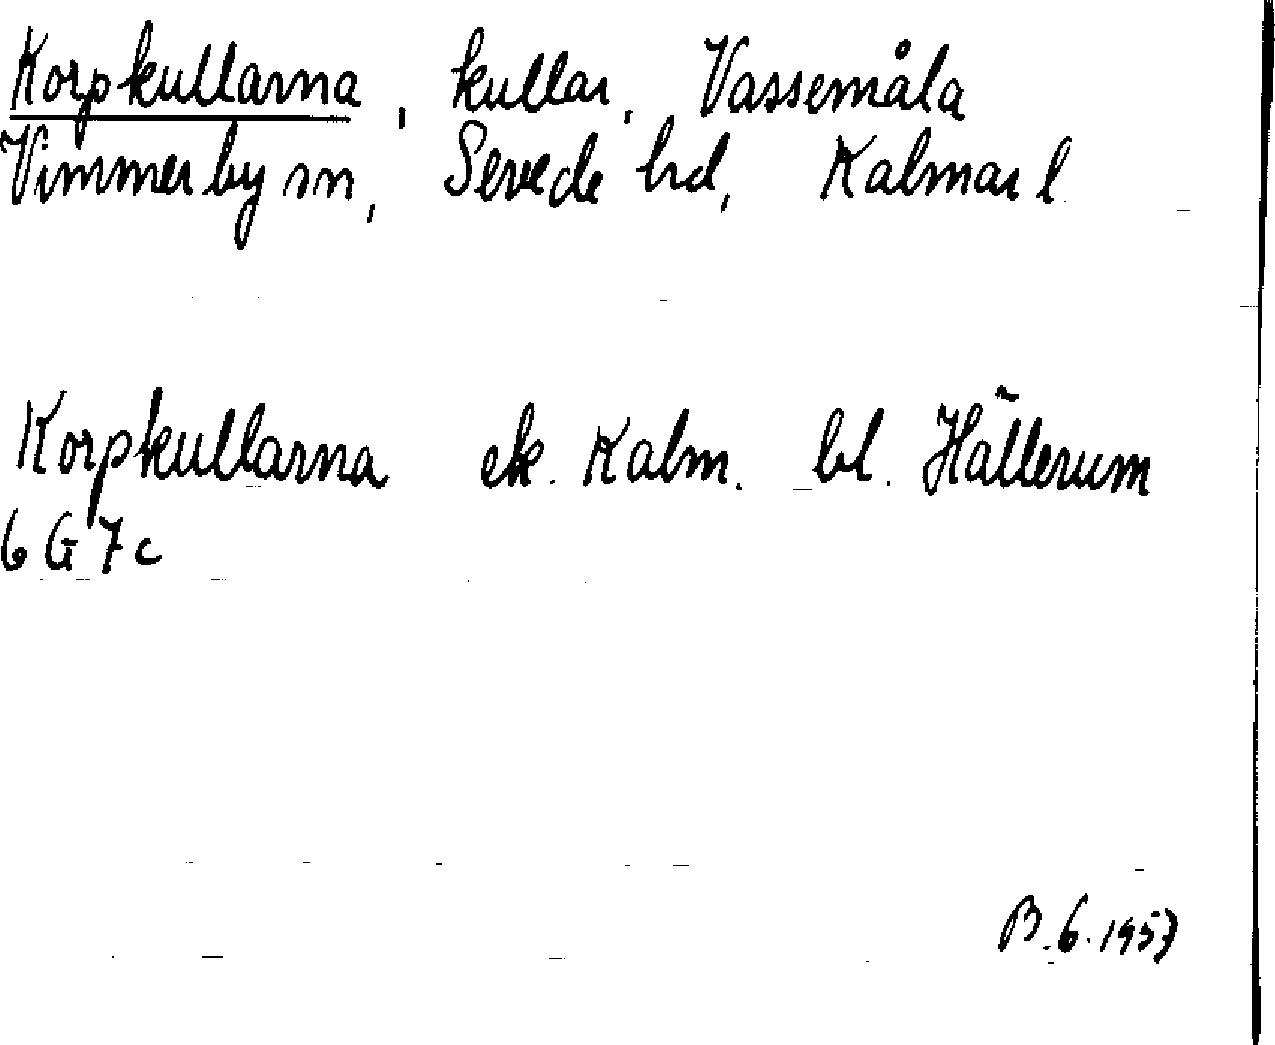 Korpkullarna, kullar, Vassemåla
Vimmerby sn, Sevede hd, Kalmar l
Korpkullarna ek. Kalm. bl. Hällerum
6 G 7 c
B. 6. 1957